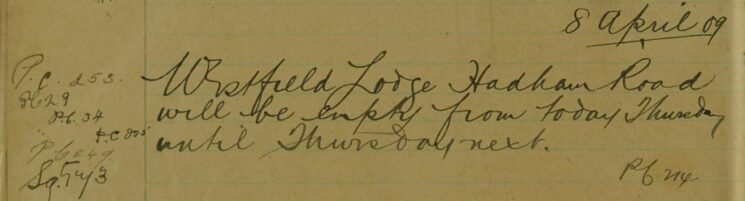 8 April 09
P.C. 253.
Westfield Lodge Hadham Road
Pc 29
will be empty from today Thursday
Pc. 34
until Thursday next.
Sg.